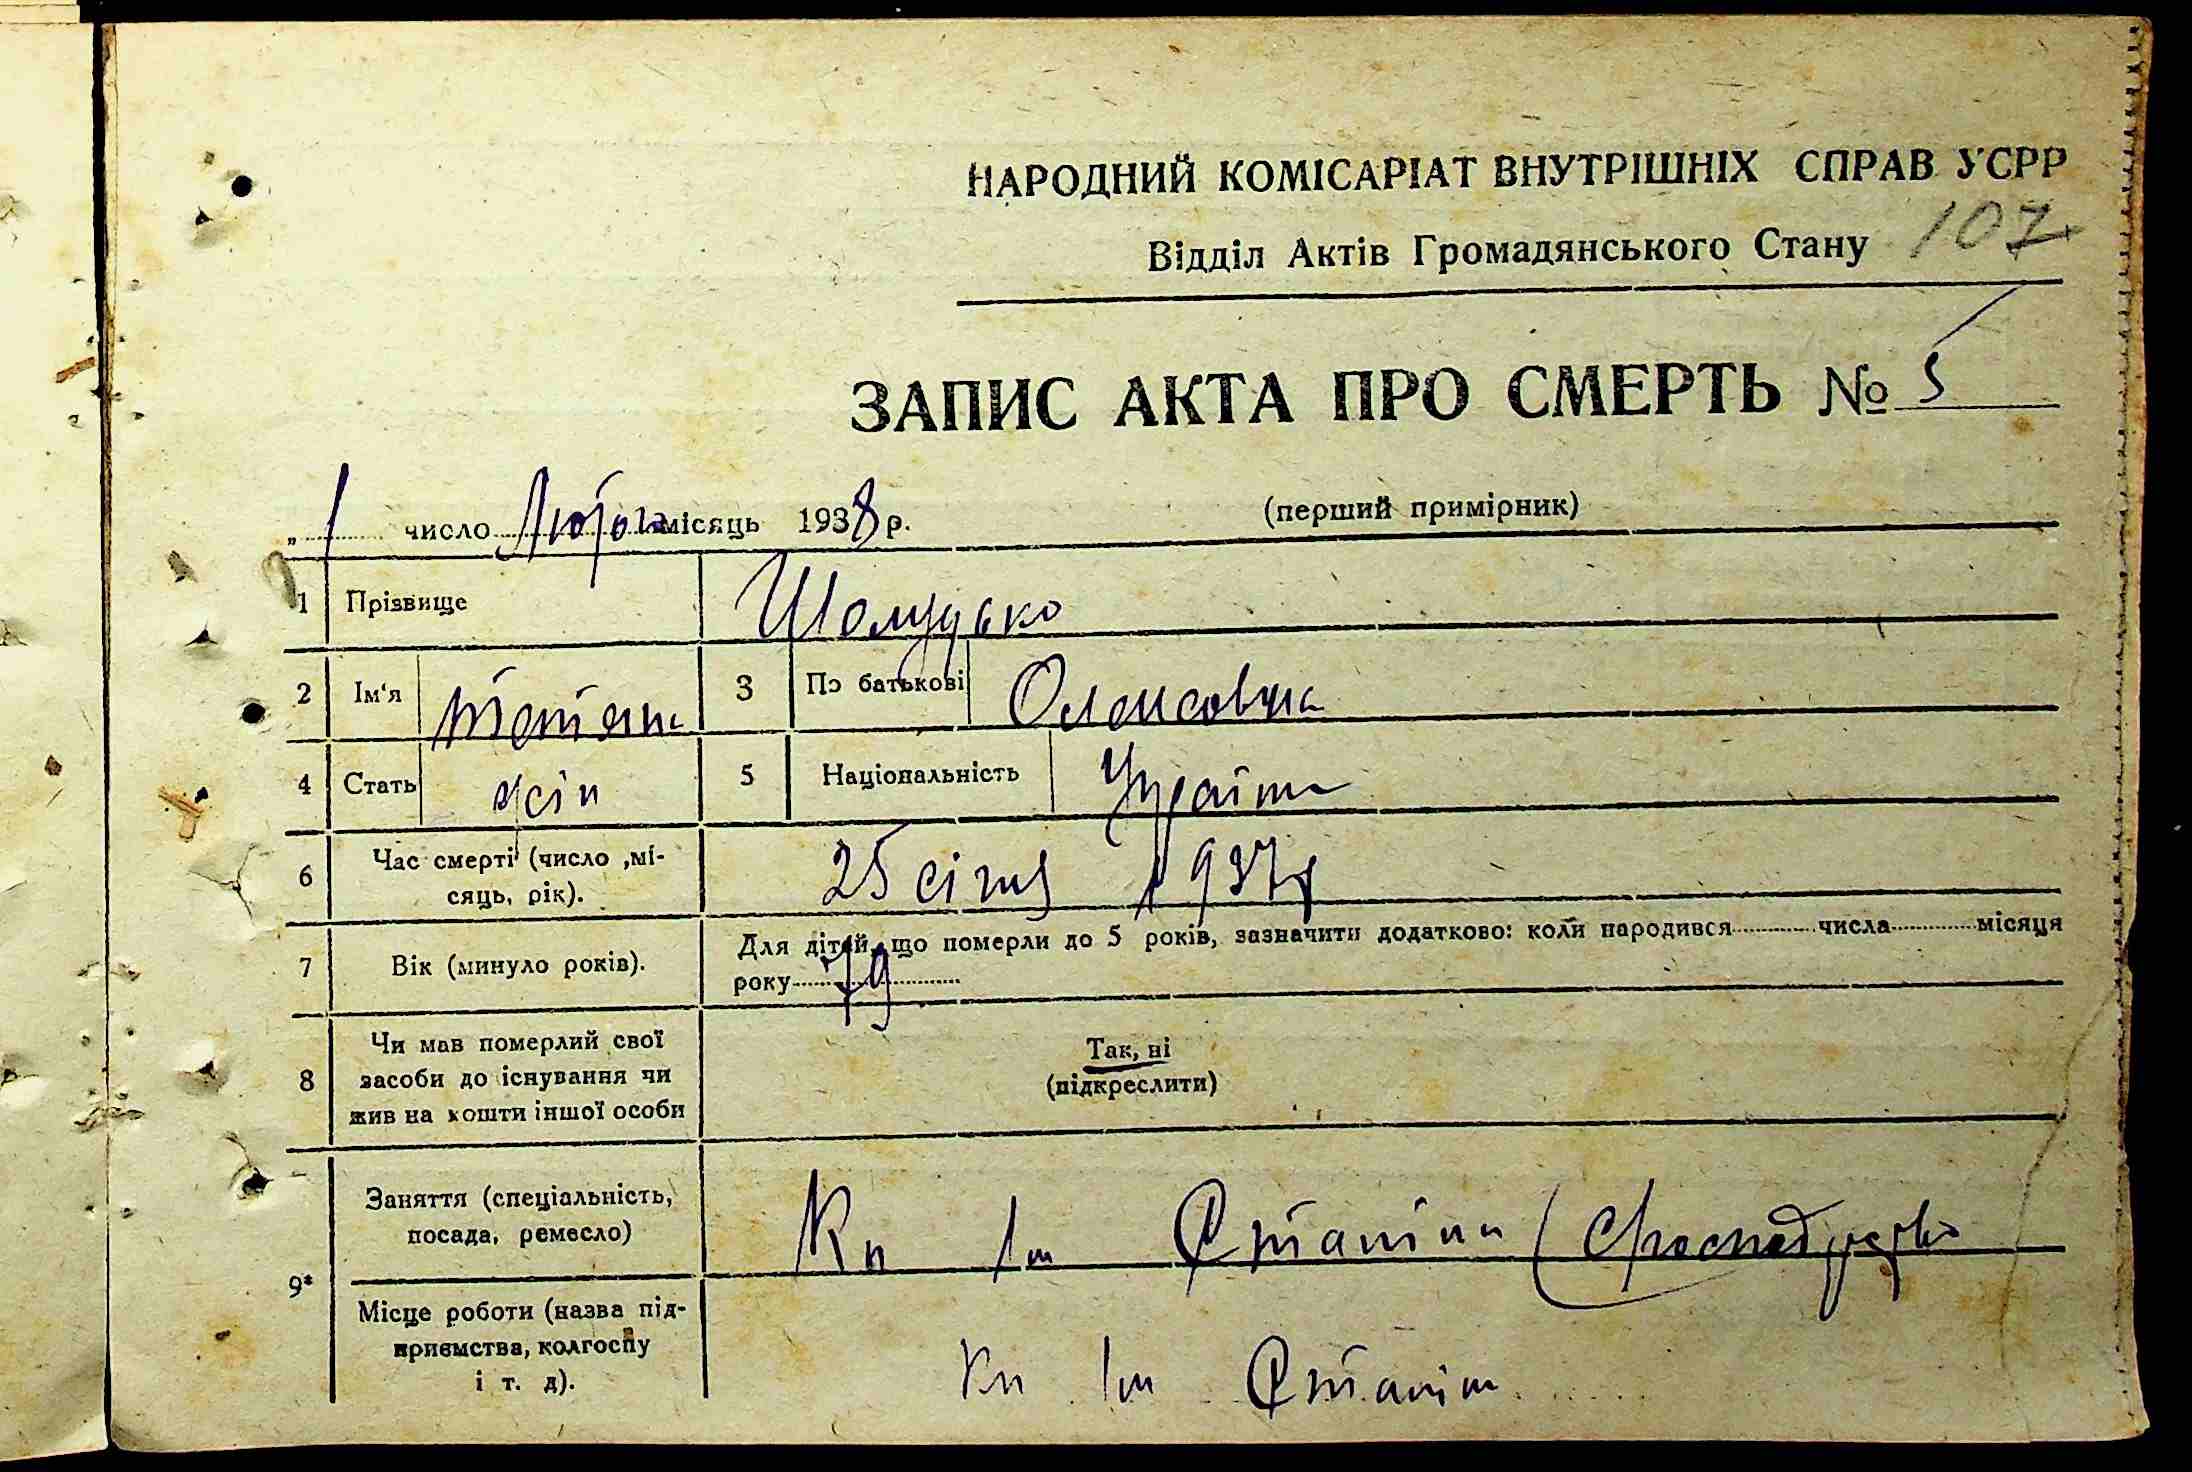 НАРОДНИЙ КОМІСАРІАТ ВНУТРІШНІХ СПРАВ УСРР
Відділ Актів Громадянського Стану 107
ЗАПИС АКТА ПРО СМЕРТЬ № 5
„ 1 число Лютого місяць 1938 р. (перший примірник)
1 Прізвище Шолудько
2 Ім'я Тетяна 3 По батькові Олексовна
4 Стать жін 5 Національність Україн
6 Час смерті (число, місяць, рік). 25 січня 1937
Для дітей, що померли до 5 років, зазначити додатково: коли народився числа місяця
7 Вік (минуло років).
року 79
8 Чи мав померлий свої
засоби до існування чи
жив на кошти іншої особи
Так, ні
(підкреслити)
9*
Заняття (спеціальність,
посада, ремесло)
Кп Ім Сталіна
Місце роботи (назва під-
приємства, колгоспу
і т. д).
Кп Ім Сталін